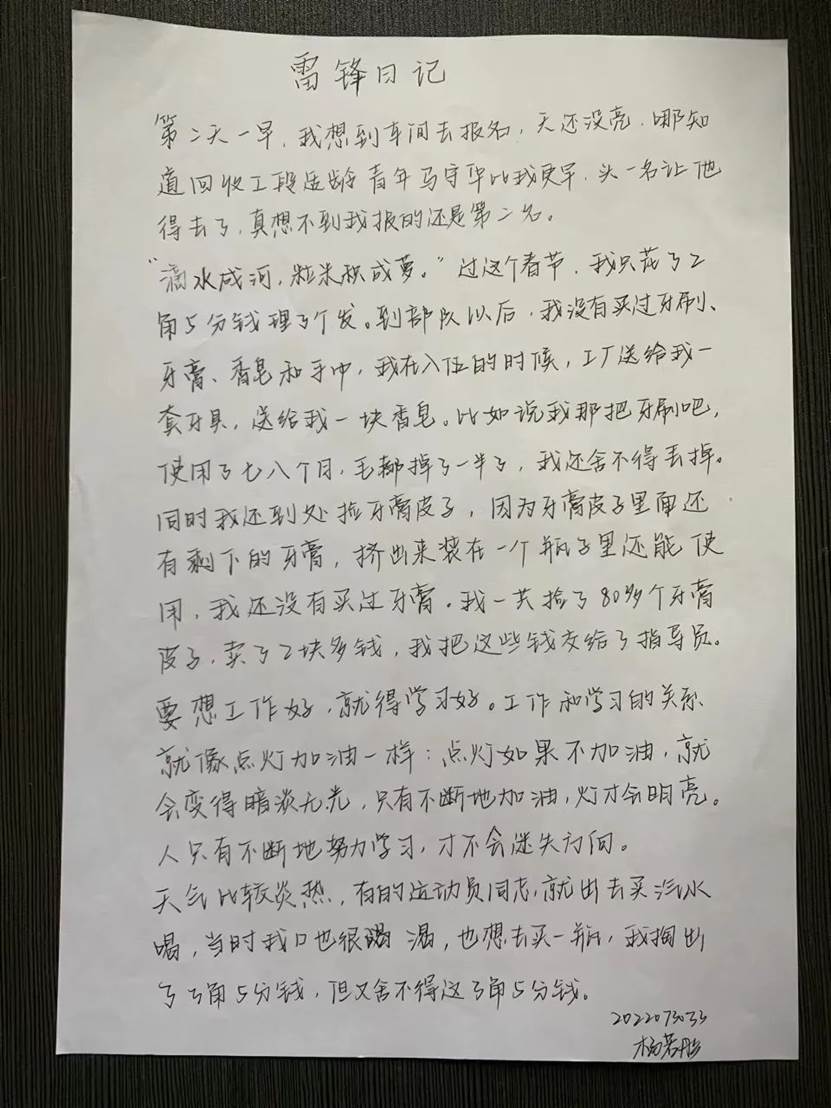 雷锋日记
第二天一早，我想到车间去报名，天还没亮，哪知
道回收工段适龄青年马守华比我更早，头一名让他
得去了，真想不到我报的还是第二名。
“滴水成河，粒米积成萝。”过这个春节，我只花了2
角5分钱理了个发。到部队以后，我没有买过牙刷、
牙膏、香皂和手巾，我在入伍的时候，工厂送给我一
套牙具，送给我一块香皂。比如说我那把牙刷吧，
使用了七八个月，毛都掉了一半了，我还舍不得丢掉。
同时我还到处捡牙膏皮子，因为牙膏皮子里面还
有剩下的牙膏，挤出来装在一个瓶子里还能使
用，我还没有买过牙膏。我一共捡了80多个牙膏
皮子，卖了2块多钱，我把这些钱交给了指导员。
要想工作好，就得学习好。工作和学习的关系
就像点灯加油一样：点灯如果不加油，就
会变得暗淡无光，只有不断地加油，灯才会明亮。
人只有不断地努力学习，才不会迷失方向。
天气比较炎热，有的运动员同志，就出去买汽水
喝，当时我口也很渴，也想去买一瓶，我掏出
了3角5分钱，但又舍不得这3角5分钱。
2022073033